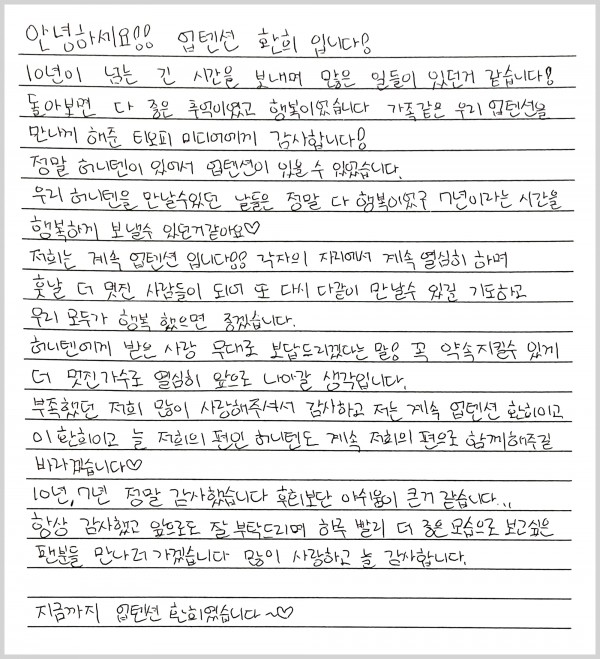 안녕하세요!! 업텐션 환희 입니다!
10년이 넘는 긴 시간을 보내며 많은 일들이 있던거 같습니다!
돌아보면 다 좋은 추억이였고 행복이었습니다 가족같은 우리 업텐션을
만나게 해준 티오피 미디어에게 감사합니다!
정말 허니텐이 있어서 업텐션이 있을 수 있었습니다.
우리 허니텐을 만날수있던 날들은 정말 다 행복이었구 7년이라는 시간을
행복하게 보낼수 있던거같아요♡
저희는 계속 업텐션 입니다!! 각자의 자리에서 계속 열심히 하며
훗날 더 멋진 사람들이 되어 또 다시 다같이 만날수 있길 기도하고
우리 모두가 행복 했으면 좋겠습니다.
허니텐에게 받은 사랑 무대로 보답드리겠다는 말! 꼭 약속지킬수 있게
더 멋진가수로 열심히 앞으로 나아갈 생각입니다.
부족했던 저희 많이 사랑해주셔서 감사하고 저는 계속 업텐션 환희이고
이환희이고 늘 저희의 편인 허니텐도 계속 저희의 편으로 함께해주길
바라겠습니다♡
10년, 7년 정말 감사했습니다 후회보단 아쉬움이 큰거 같습니다...
항상 감사했고 앞으로도 잘 부탁드리며 하루 빨리 더 좋은 모습으로 보고싶은
팬분들 만나러 가겠습니다 많이 사랑하고 늘 감사합니다.
지금까지 업텐션 환희였습니다~♡